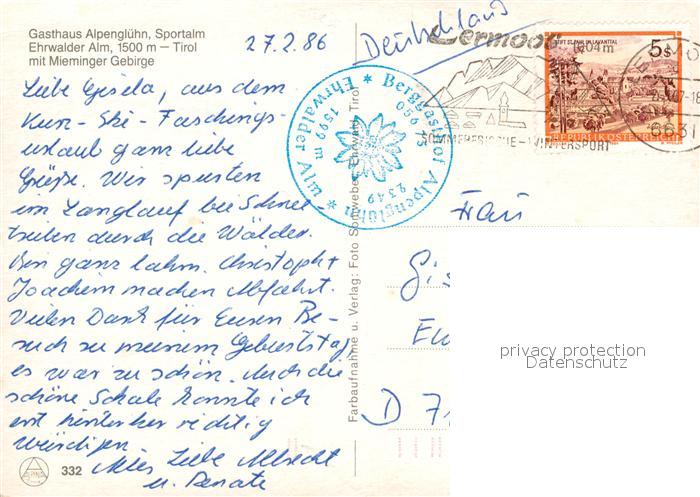 Gasthaus Alpenglühn, Sportalm
Ehrwalder Alm, 1500 m — Tirol
mit Mieminger Gebirge
27.2.86
Deutschland
Liebe Gisela, aus dem
Kurz-Ski-Faschings-
urlaub ganz liebe
Grüße. Wir spurten
im Langlauf bei Schnee
treiben durch die Wälder.
Bin ganz lahm. Christoph +
Joachim machen Abfahrt.
Vielen Dank für Euren Be-
such zu meinem Geburtstag,
es war zu schön. Auch die
schöne Schale konnte ich
erst hinterher richtig
würdigen.
Alles Liebe Albrecht
u. Renate
332
Farbaufnahme u. Verlag: Foto Somweber, Ehrwald, Tirol
Berggasthof Alpenglühn
Ehrwalder Alm
1599 m
2349
Lermoos
1004 m
SOMMERFRISCHE-WINTERSPORT
STIFT ST. PAUL IM LAVANTTAL
5 S
REPUBLIK ÖSTERREICH
6631
Frau
Gis
D 7
privacy protection
Datenschutz